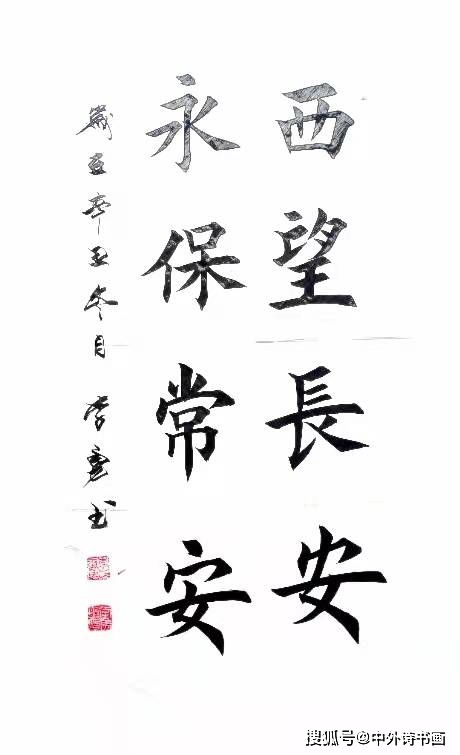 西望長安
永保常安
歲在辛丑冬月 李 书
搜狐号@中外诗书画